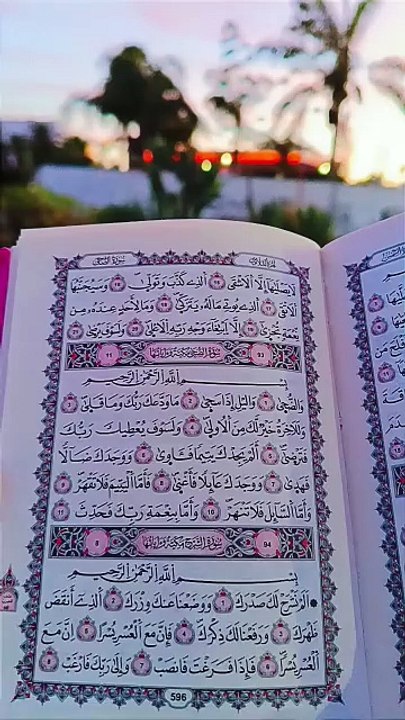 لَا يَصْلَىٰهَآ إِلَّا ٱلْأَشْقَى ١٥ ٱلَّذِى كَذَّبَ وَتَوَلَّىٰ ١٦ وَسَيُجَنَّبُهَا
ٱلْأَتْقَى ١٧ ٱلَّذِى يُؤْتِى مَالَهُۥ يَتَزَكَّىٰ ١٨ وَمَا لِأَحَدٍ عِندَهُۥ مِن
نِّعْمَةٍ تُجْزَىٰٓ ١٩ إِلَّا ٱبْتِغَآءَ وَجْهِ رَبِّهِ ٱلْأَعْلَىٰ ٢٠ وَلَسَوْفَ يَرْضَىٰ ٢١
93
بِسْمِ ٱللَّهِ ٱلرَّحْمَٰنِ ٱلرَّحِيمِ
وَٱلضُّحَىٰ ١ وَٱلَّيْلِ إِذَا سَجَىٰ ٢ مَا وَدَّعَكَ رَبُّكَ وَمَا قَلَىٰ ٣
وَلَلْـَٔاخِرَةُ خَيْرٌ لَّكَ مِنَ ٱلْأُولَىٰ ٤ وَلَسَوْفَ يُعْطِيكَ رَبُّكَ
فَتَرْضَىٰٓ ٥ أَلَمْ يَجِدْكَ يَتِيمًا فَـَٔاوَىٰ ٦ وَوَجَدَكَ ضَآلًّا
فَهَدَىٰ ٧ وَوَجَدَكَ عَآئِلًا فَأَغْنَىٰ ٨ فَأَمَّا ٱلْيَتِيمَ فَلَا تَقْهَرْ ٩
وَأَمَّا ٱلسَّآئِلَ فَلَا تَنْهَرْ ١٠ وَأَمَّا بِنِعْمَةِ رَبِّكَ فَحَدِّثْ ١١
94
بِسْمِ ٱللَّهِ ٱلرَّحْمَٰنِ ٱلرَّحِيمِ
أَلَمْ نَشْرَحْ لَكَ صَدْرَكَ ١ وَوَضَعْنَا عَنكَ وِزْرَكَ ٢ ٱلَّذِىٓ أَنقَضَ
ظَهْرَكَ ٣ وَرَفَعْنَا لَكَ ذِكْرَكَ ٤ فَإِنَّ مَعَ ٱلْعُسْرِ يُسْرًا ٥ إِنَّ مَعَ
ٱلْعُسْرِ يُسْرًا ٦ فَإِذَا فَرَغْتَ فَٱنصَبْ ٧ وَإِلَىٰ رَبِّكَ فَٱرْغَب ٨
596